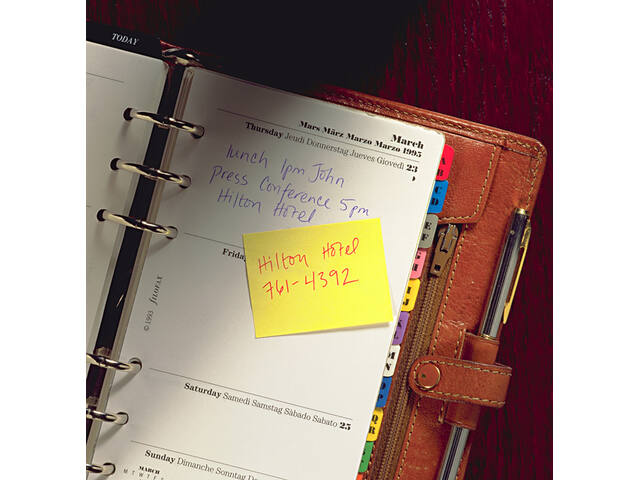 TODAY
March
Mars März Marzo Marzo 1995
Thursday Jeudi Donnerstag Jueves Giovedì 23
lunch 1pm John
Press Conference 5pm
Hilton Hotel
Frida
Hilton Hotel
761-4392
© 1993 FILOFAX
Saturday Samedi Samstag Sàbado Sabato 25
Sunday Dimanche Sonntag Do
MARCH
M T W T F S
A
B
C
D
E
F